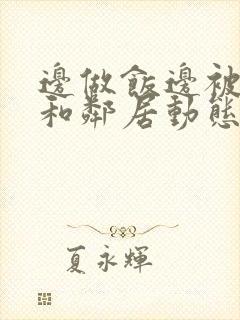 邊做飯邊被
和鄰居動態
夏永輝